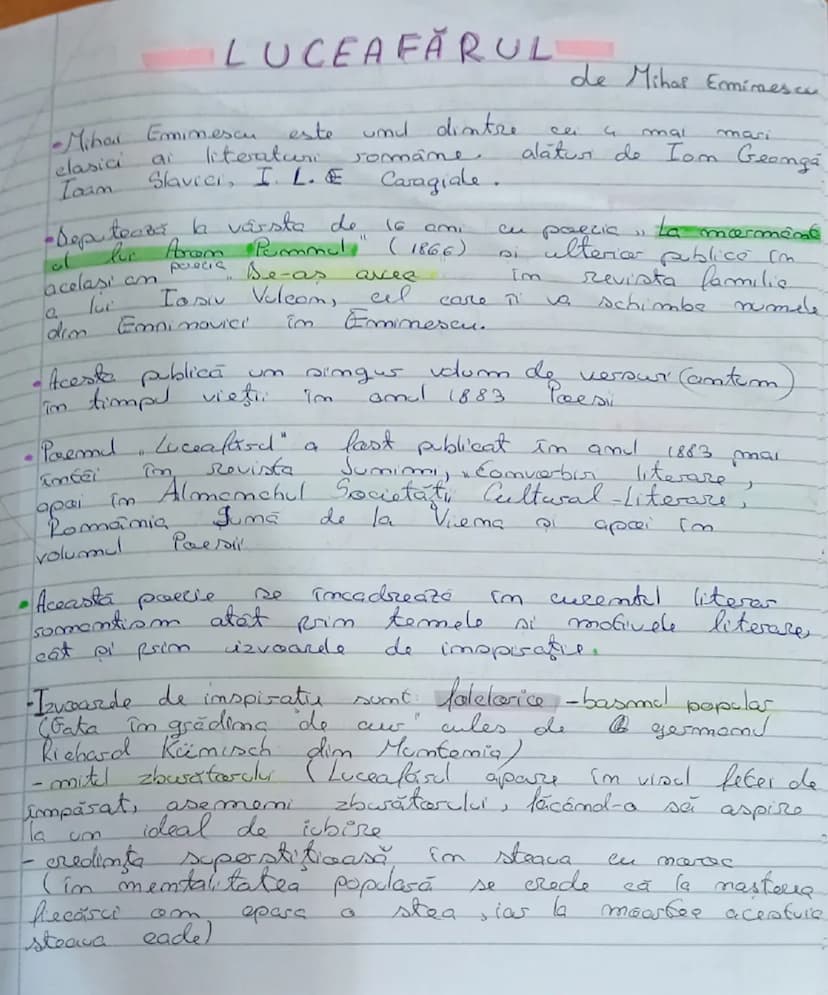 LUCEAFĂRUL
de Mihai Eminescu
• Mihai Eminescu este unul dintre cei 4 mai mari
clasici ai literaturii române alături de Ion Creangă
Ioan Slavici, I. L. Caragiale.
• Debutează la vârsta de 16 ani cu poezia „La mormântul
al lui Aron Pumnul" (1866) și ulterior publică în
același an poezia „De-aș avea în revista familia
a lui Iosiv Vulcan, cel care îi va schimba numele
din Eminovici în Eminescu.
• Acesta publică un singur volum de versuri (antum)
în timpul vieții în anul 1883 Poesii
• Poemul „Luceafărul" a fost publicat în anul 1883 mai
întâi în revista Junimii, „Convorbiri literare,
apoi în Almanahul Societății Cultural-Literare,
România Jună de la Viena și apoi în
volumul Poesii
• Această poezie se încadrează în curentul literar
romantism atât prin temele și motivele literare,
cât și prin izvoarele de inspirație.
- Izvoarele de inspirație sunt: folclorice - basmul popular
(Fata în grădina de aur" cules de germanul
Richard Künisch din Muntenia)
- mitul zburătorului (Luceafărul apare în visul fetei de
împărat, asemeni zburătorului, făcând-o să aspire
la un ideal de iubire
- credința superstițioasă în steaua cu noroc
(în mentalitatea populară se crede că la nașterea
fiecărui om apare o stea, iar la moartea acestuia
steaua cade)